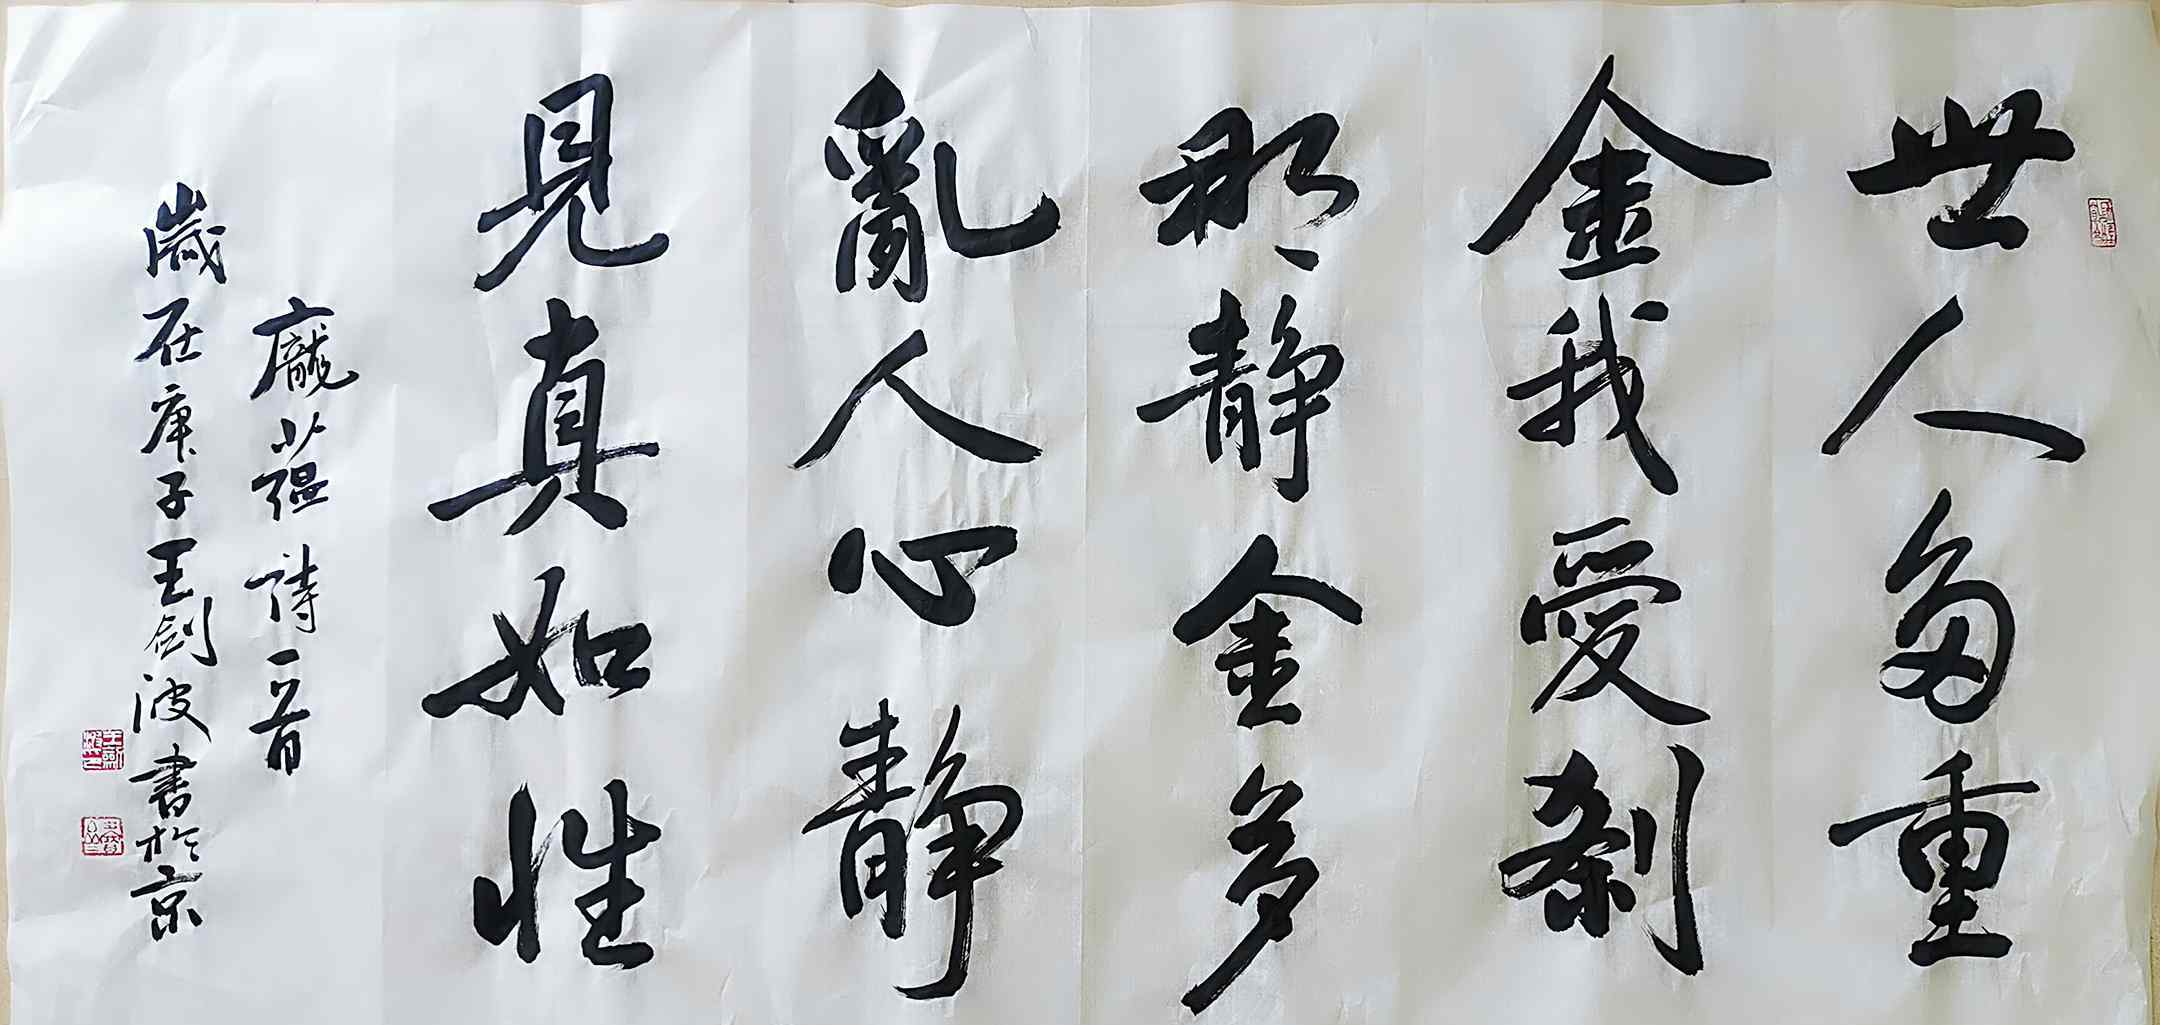 世人多重
金我愛刹
那靜金多
亂人心靜
見真如性
龐蘊詩一首
歲在庚子王劍波書於京